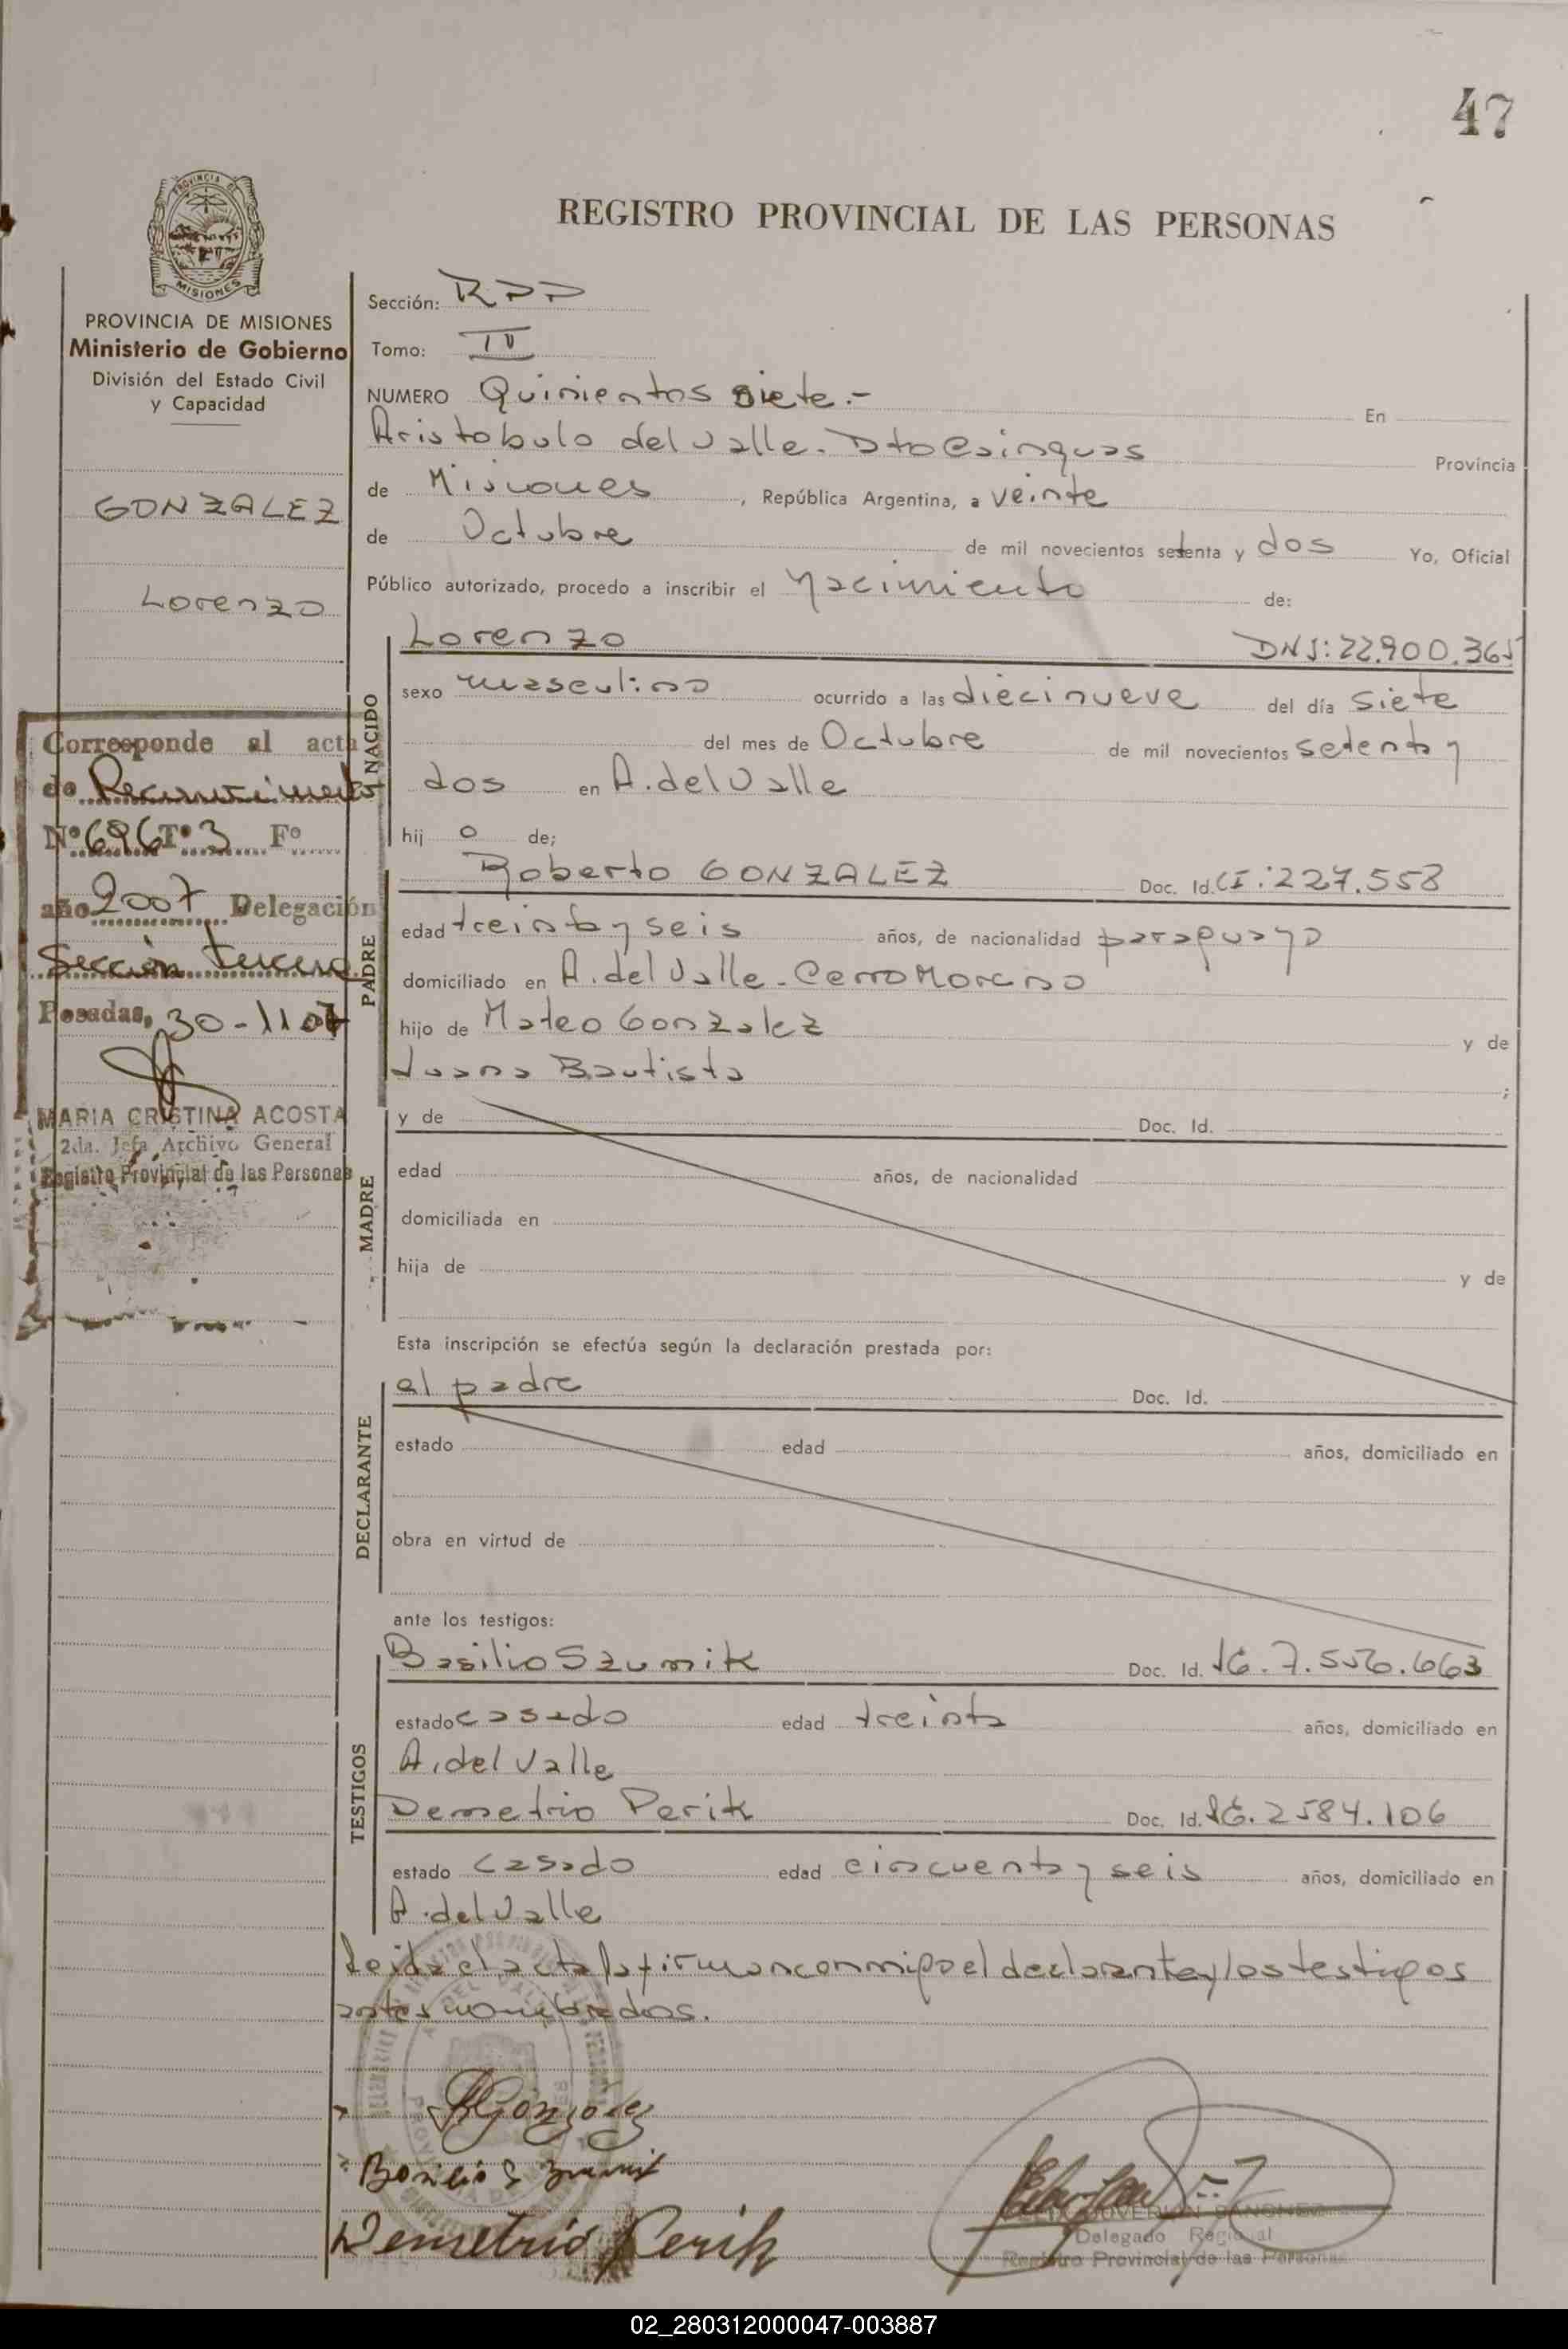 47
REGISTRO PROVINCIAL DE LAS PERSONAS
PROVINCIA DE
MISIONES
PROVINCIA DE MISIONES
Ministerio de Gobierno
División del Estado Civil
y Capacidad
GONZALEZ
Lorenzo
Corresponde al acta
de Reconocimiento
Nº 696 Tº 3 Fº
año 2007 Delegación
Sección tercera
Posadas, 30-11-07
MARIA CRISTINA ACOSTA
2da. Jefa Archivo General
Registro Provincial de las Personas
Sección: RPP
Tomo: IV
NUMERO Quinientos siete.- En
Aristobulo del Valle. Dto Cainguas Provincia
de Misiones, República Argentina, a veinte
de Octubre de mil novecientos setenta y dos Yo, Oficial
Público autorizado, procedo a inscribir el Nacimiento de:
NACIDO
Lorenzo DNI: 22.900.365
sexo masculino ocurrido a las diecinueve del día siete
del mes de Octubre de mil novecientos setenta y
dos en A. del Valle
hij o de;
PADRE
Roberto GONZALEZ Doc. Id. CI: 227.558
edad treinta y seis años, de nacionalidad paraguayo
domiciliado en A. del Valle - Cerro Moreno
hijo de Mateo Gonzalez y de
Juana Bautista ;
MADRE
y de Doc. Id.
edad años, de nacionalidad
domiciliada en
hija de y de
Esta inscripción se efectúa según la declaración prestada por:
DECLARANTE
el padre Doc. Id.
estado edad años, domiciliado en
obra en virtud de
ante los testigos:
TESTIGOS
Basilio Szumik Doc. Id. 7.556.663
estado casado edad treinta años, domiciliado en
A. del Valle
Demetrio Perik Doc. Id. 2584.106
estado casado edad cincuenta y seis años, domiciliado en
A. del Valle
Leida el acta la firman conmigo el declarante y los testigos
antes nombrados.
RGonzalez
Basilio Szumik
Demetrio Perik
SANCHEZ
Delegado Regional
Registro Provincial de las Personas
02_280312000047-003887